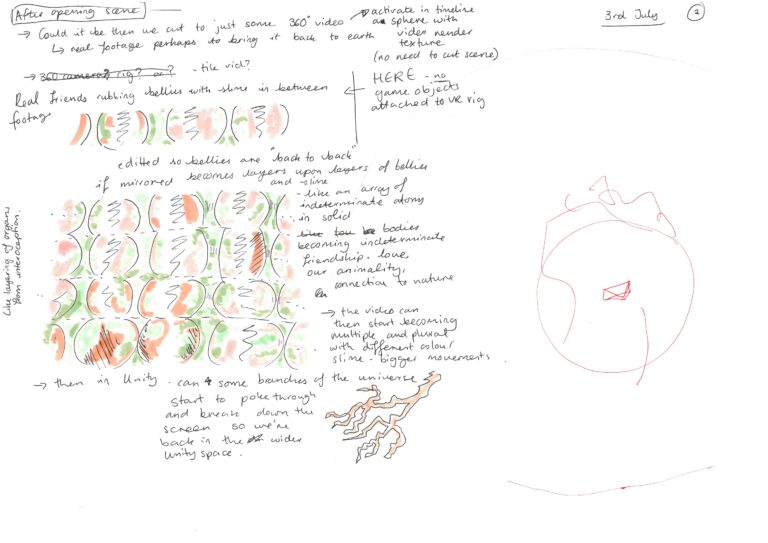 After opening scene
3rd July
2
→ Could it be then we cut to just some 360° video
↳ real footage perhaps to bring it back to earth
→ activate in timeline
a sphere with
video render
texture
(no need to cut scene)
→ 360 camera? rig? or? - tile vid?
Real friends rubbing bellies with slime in between
footage
HERE - no
game objects
attached to VR rig
editted so bellies are "back to back"
if mirrored becomes layers upon layers of bellies
and slime
- like an array of
indeterminate atoms
in solid
like bodies
becoming indeterminate
friendship, love,
our animality,
connection to nature
Like layering of organs
from interoception
→ the video can
then start becoming
multiple and plural
with different colour
slime - bigger movements
→ then in Unity - can some branches of the universe
start to poke through
and break down the
screen so we're
back in the wider
Unity space.